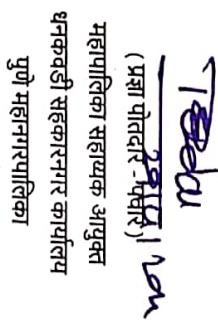 (प्रज्ञा पोतदार - पवार)
महापालिका सहाय्यक आयुक्त
धनकवडी सहकारनगर कार्यालय
पुणे महानगरपालिका